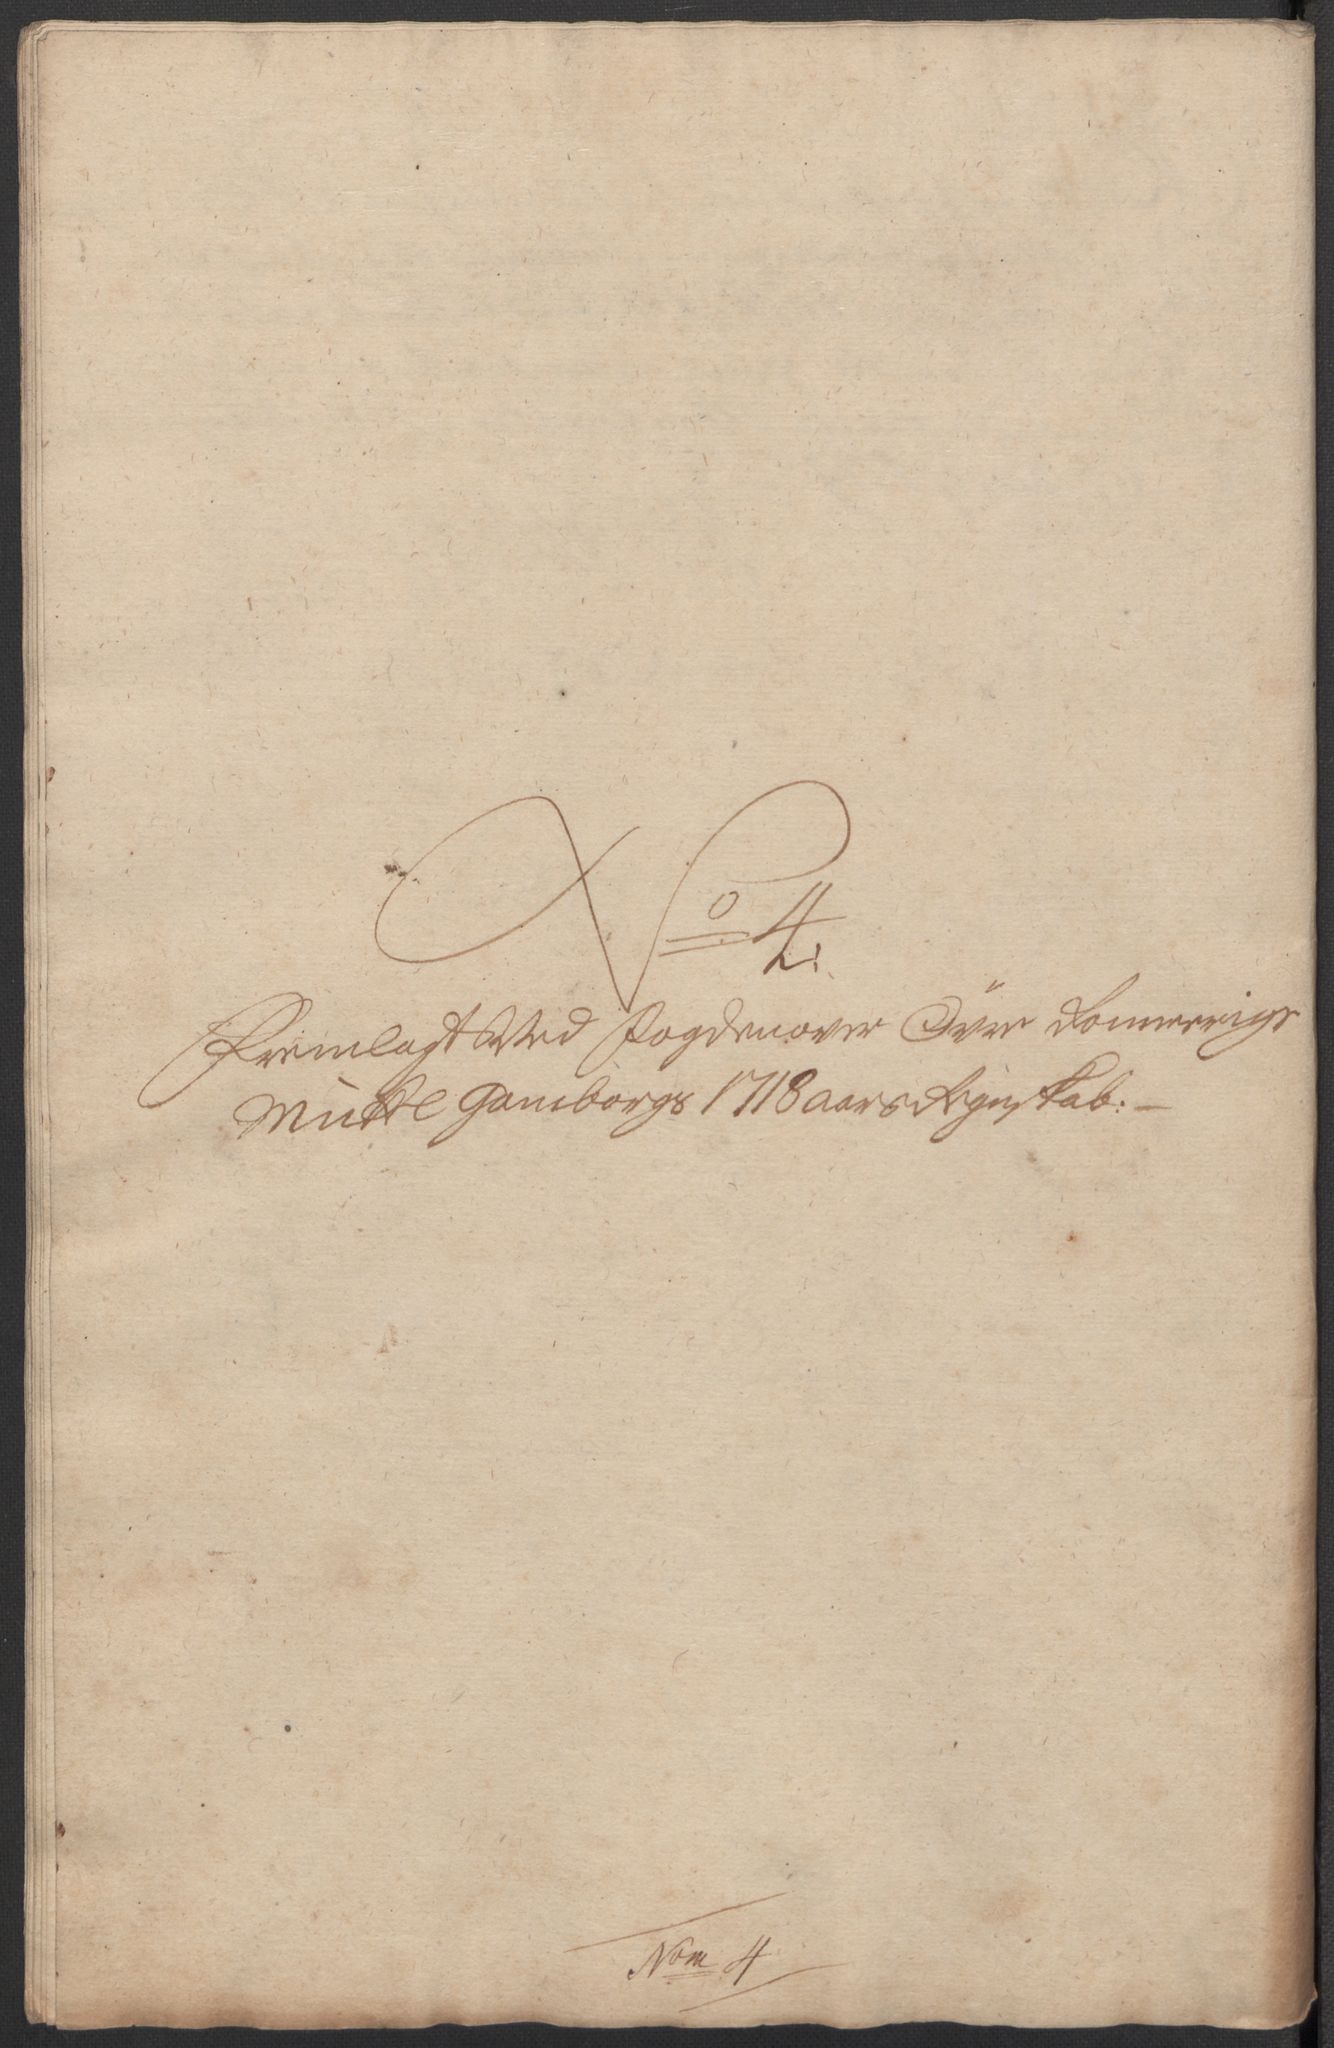 No 4.
Fremlagt Ved Fogden over Övre Romerrigs
Mükle Gamborgs 1718 aars Regnskab. —
Nom 4